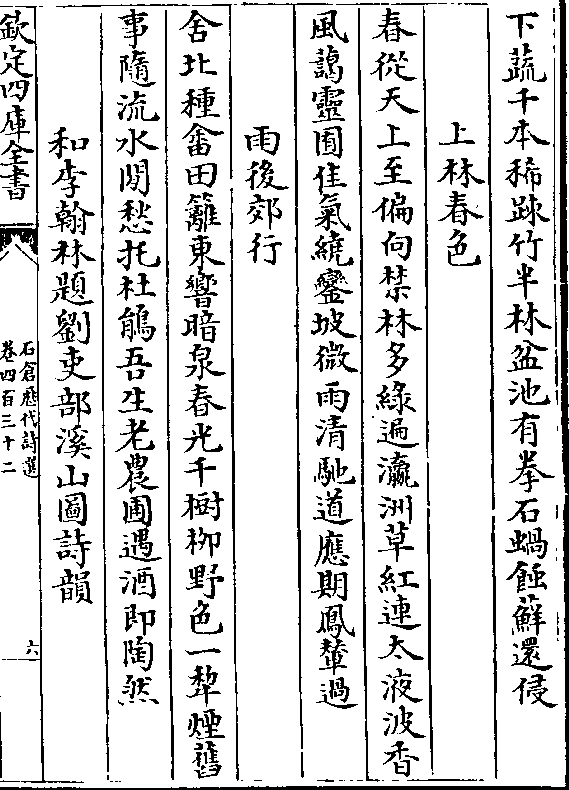 下蔬千本稀踈竹半林盆池有拳石蝸蝕蘚還侵
上林春色
春從天上至偏向禁林多綠遍瀛洲草紅連太液波香
風藹靈囿佳氣繞鑾坡微雨清馳道應期鳳輦過
雨後郊行
舍北種畬田籬東響暗泉春光千樹柳野色一犂煙舊
事隨流水閒愁托杜鵑吾生老農圃遇酒即陶然
和李翰林題劉吏部溪山圖詩韻
欽定四庫全書
石倉歷代詩選
卷四百三十二
六